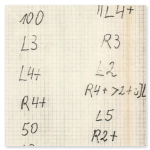 100
L3
L4+
R4+
50
11L4+
R3
L2
R4+ >2+
L5
R2+